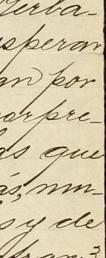 erba-
esperan
an por
arpre-
as que
ás, mu-
s y de